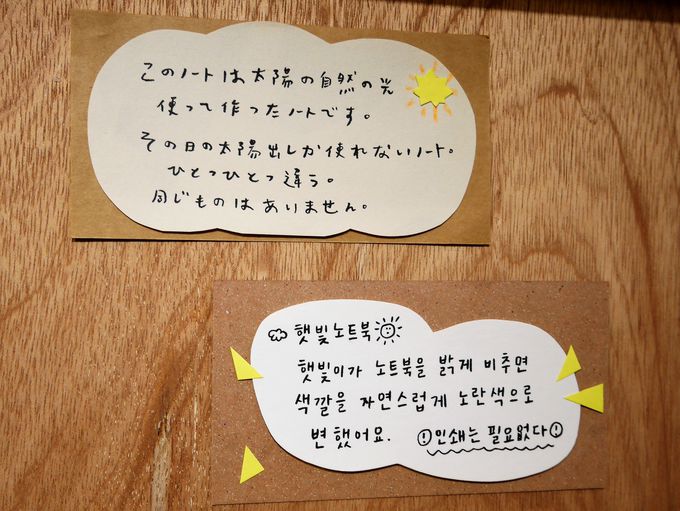 このノートは太陽の自然の光
使って作ったノートです。
その日の太陽出しか使れないノート。
ひとつひとつ違う。
同じものはありません。
햇빛노트북
햇빛이가 노트북을 밝게 비추면
색깔을 자연스럽게 노란색으로
변했어요. (!)인쇄는 필요없다(!)